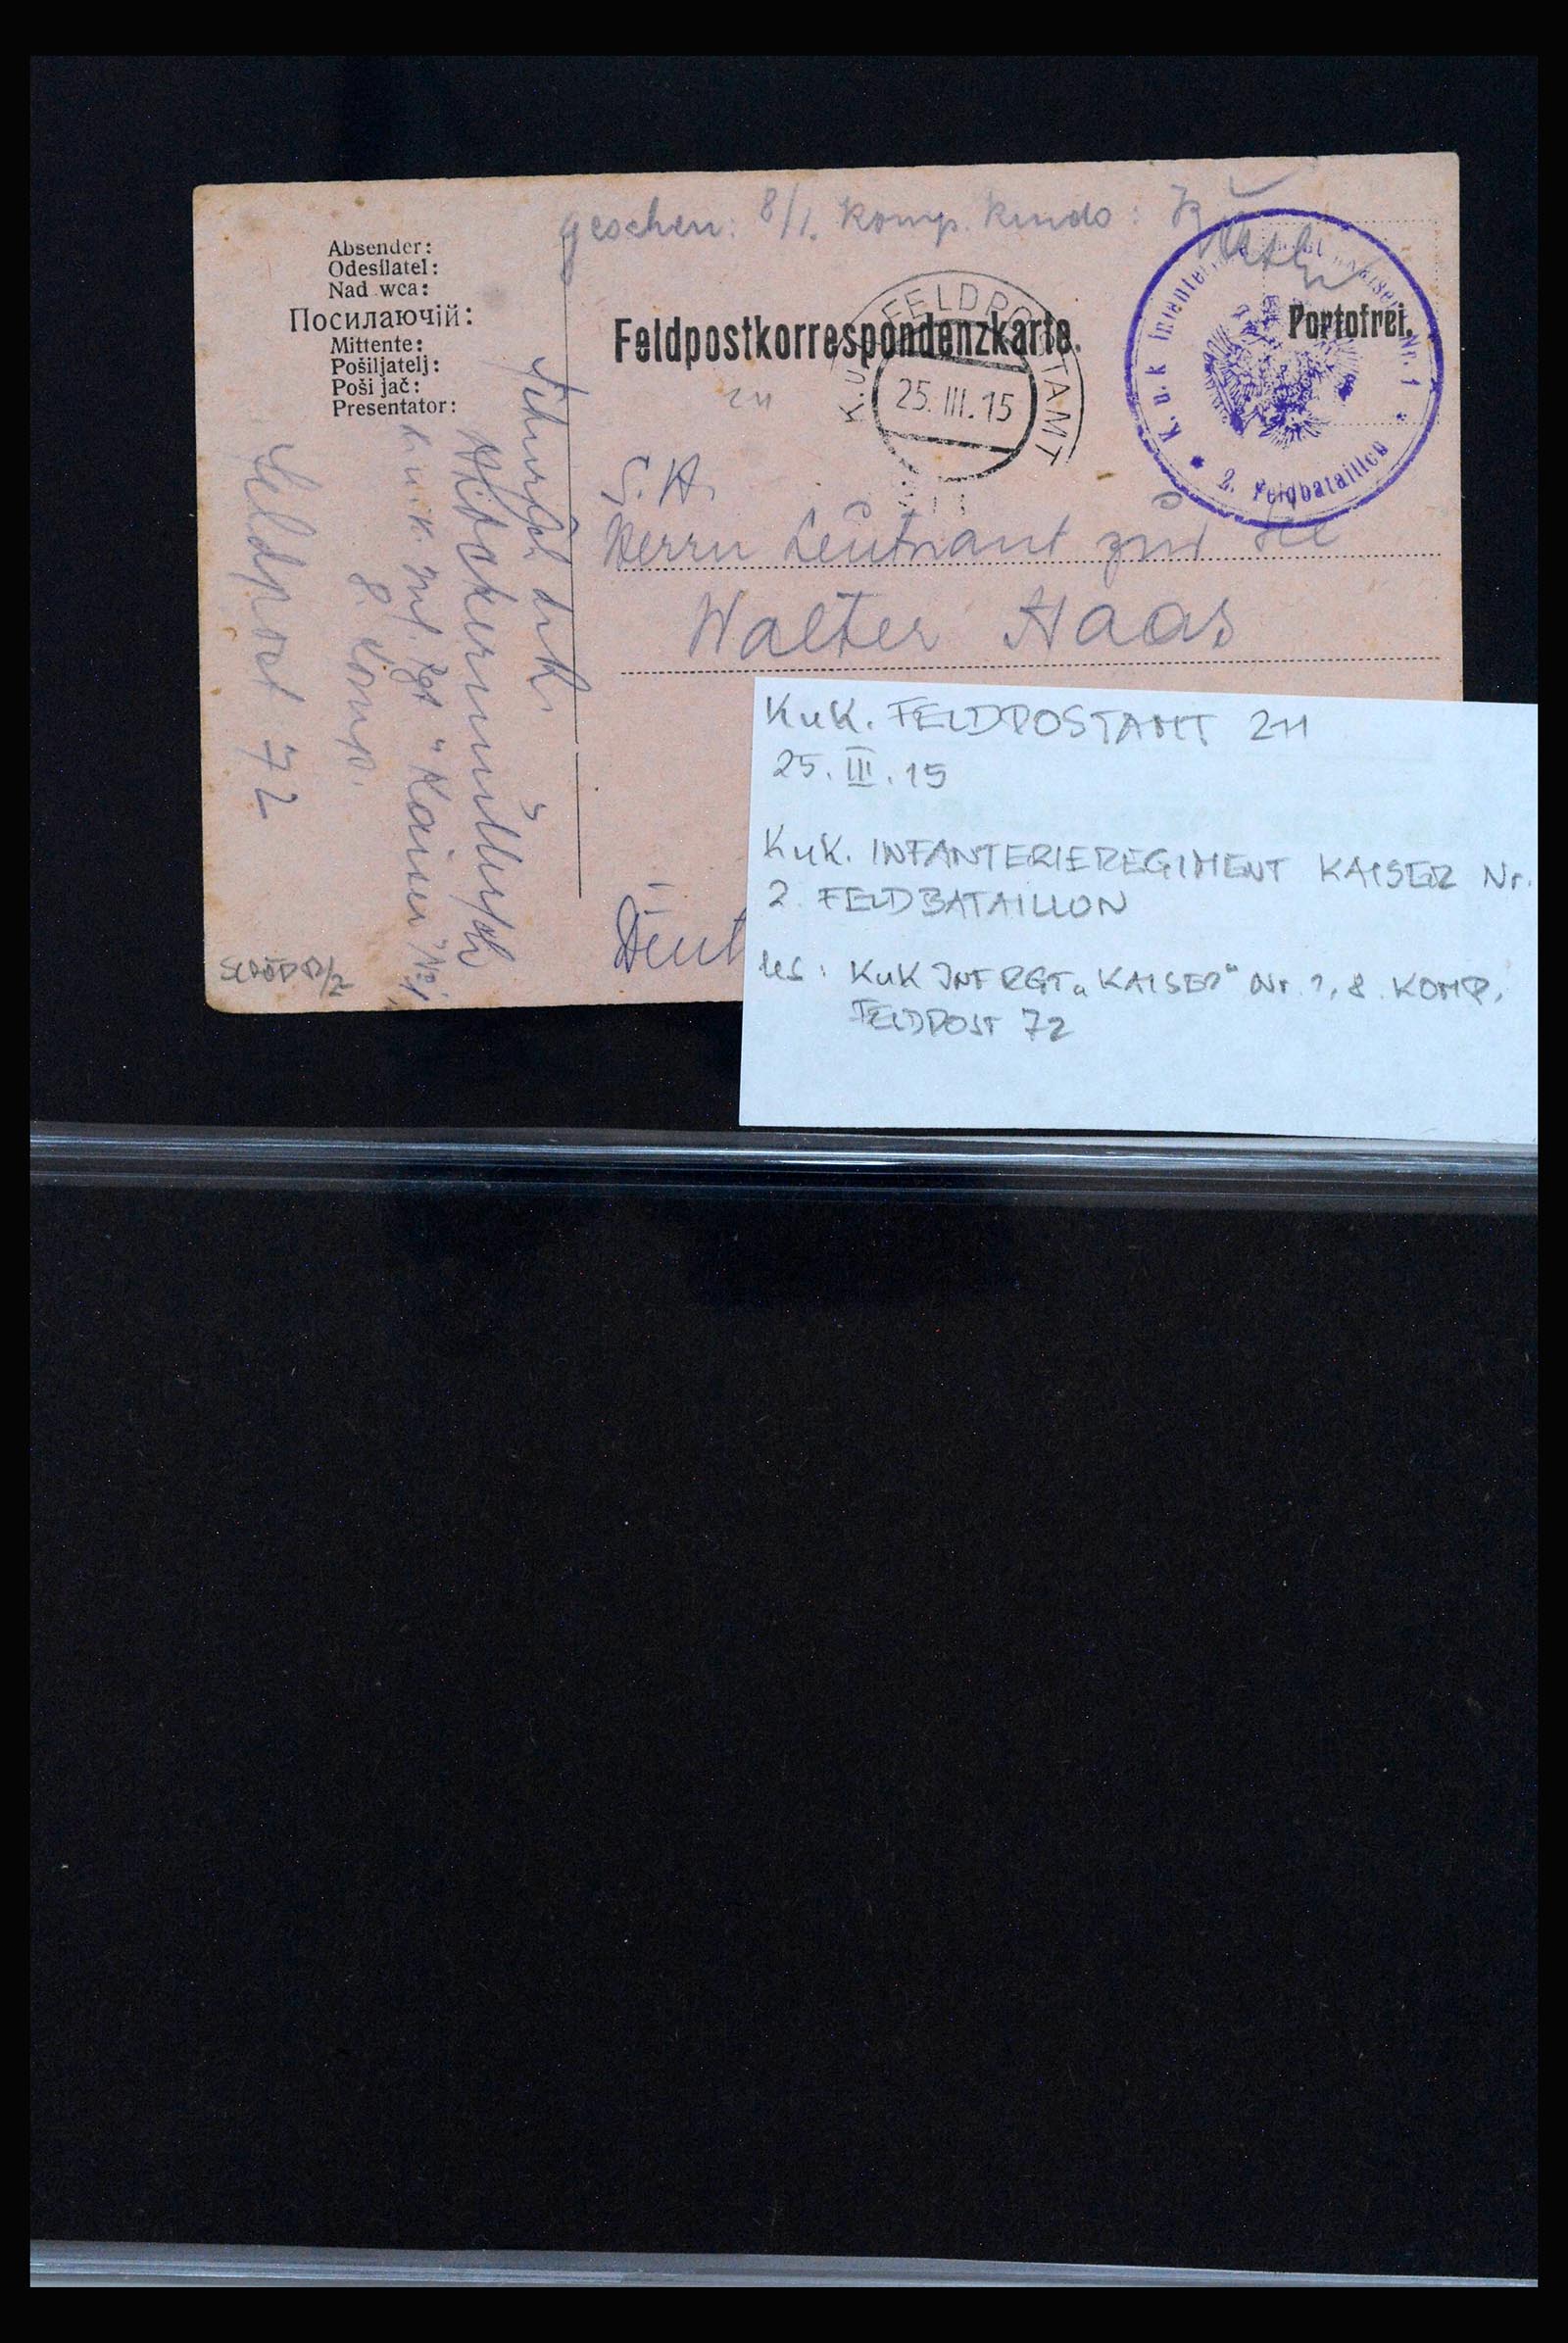 geschen: 8/1. Komp. Kmdo:
Absender:
Odesílatel:
Nad wca:
Посилаючій:
Mittente:
Pošiljatelj:
Poši jač:
Presentator:
Feldpostkorrespondenzkarte.
Portofrei.
K.u.K. FELDPOSTAMT
25.III.15
K. u. k Infanterie Kaiser Nr. 1
* 2. Feldbataillon *
211
S. H.
Herrn Leutnant zur See
Walter Haas
k. u. k. Inf. Rgt "Kaiser" No 1,
8. Komp.
Feldpost 72
KuK. FELDPOSTAMT 211
25. III. 15
KuK. INFANTERIEREGIMENT KAISER Nr.
2. FELDBATAILLON
hs: KuK INF RGT „KAISER" Nr. 1, 8. KOMP.
FELDPOST 72